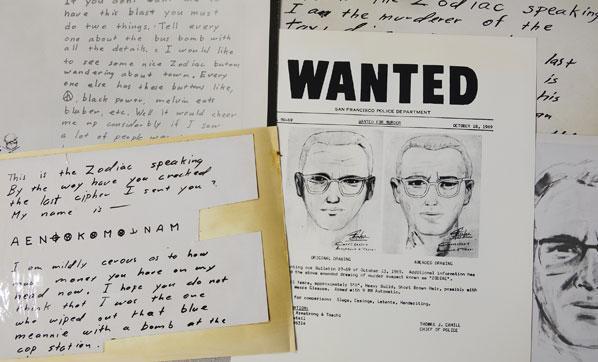 have this blast you must
do two things. Tell every
one about the bus bomb with
all the details. I would like
to see some nice Zodiac butons
wandering about town. Every
one else has these buttons like,
black power, melvin eats
blaber, etc. Well it would cheer
me up considerbly if I saw
a lot of people
This is the Zodiac speaking
By the way have you cracked
the last cipher I sent you?
My name is —
A E N ⌖ ⊗ K ⊗ M ⊗ ⅃ N A M
I am mildly cerous as to how
much money you have on my
head now. I hope you do not
think that I was the one
who wiped out that blue
meannie with a bomb at the
cop station.
the Zodiac speaking
I am the murderer of the
last
is
his
an
WANTED
SAN FRANCISCO POLICE DEPARTMENT
90-69
WANTED FOR MURDER
OCTOBER 18, 1969
ORIGINAL DRAWING
AMENDED DRAWING
our Bulletin 87-69 of October 13, 1969. Additional information has
the above amended drawing of murder suspect known as "ZODIAC".
years, approximately 5'8", Heavy Build, Short Brown Hair, possibly with
Glasses. Armed with 9 MM Automatic.
for comparisons: Slugs, Casings, Latents, Handwriting.
Armstrong & Toschi
THOMAS J. CAHILL
CHIEF OF POLICE